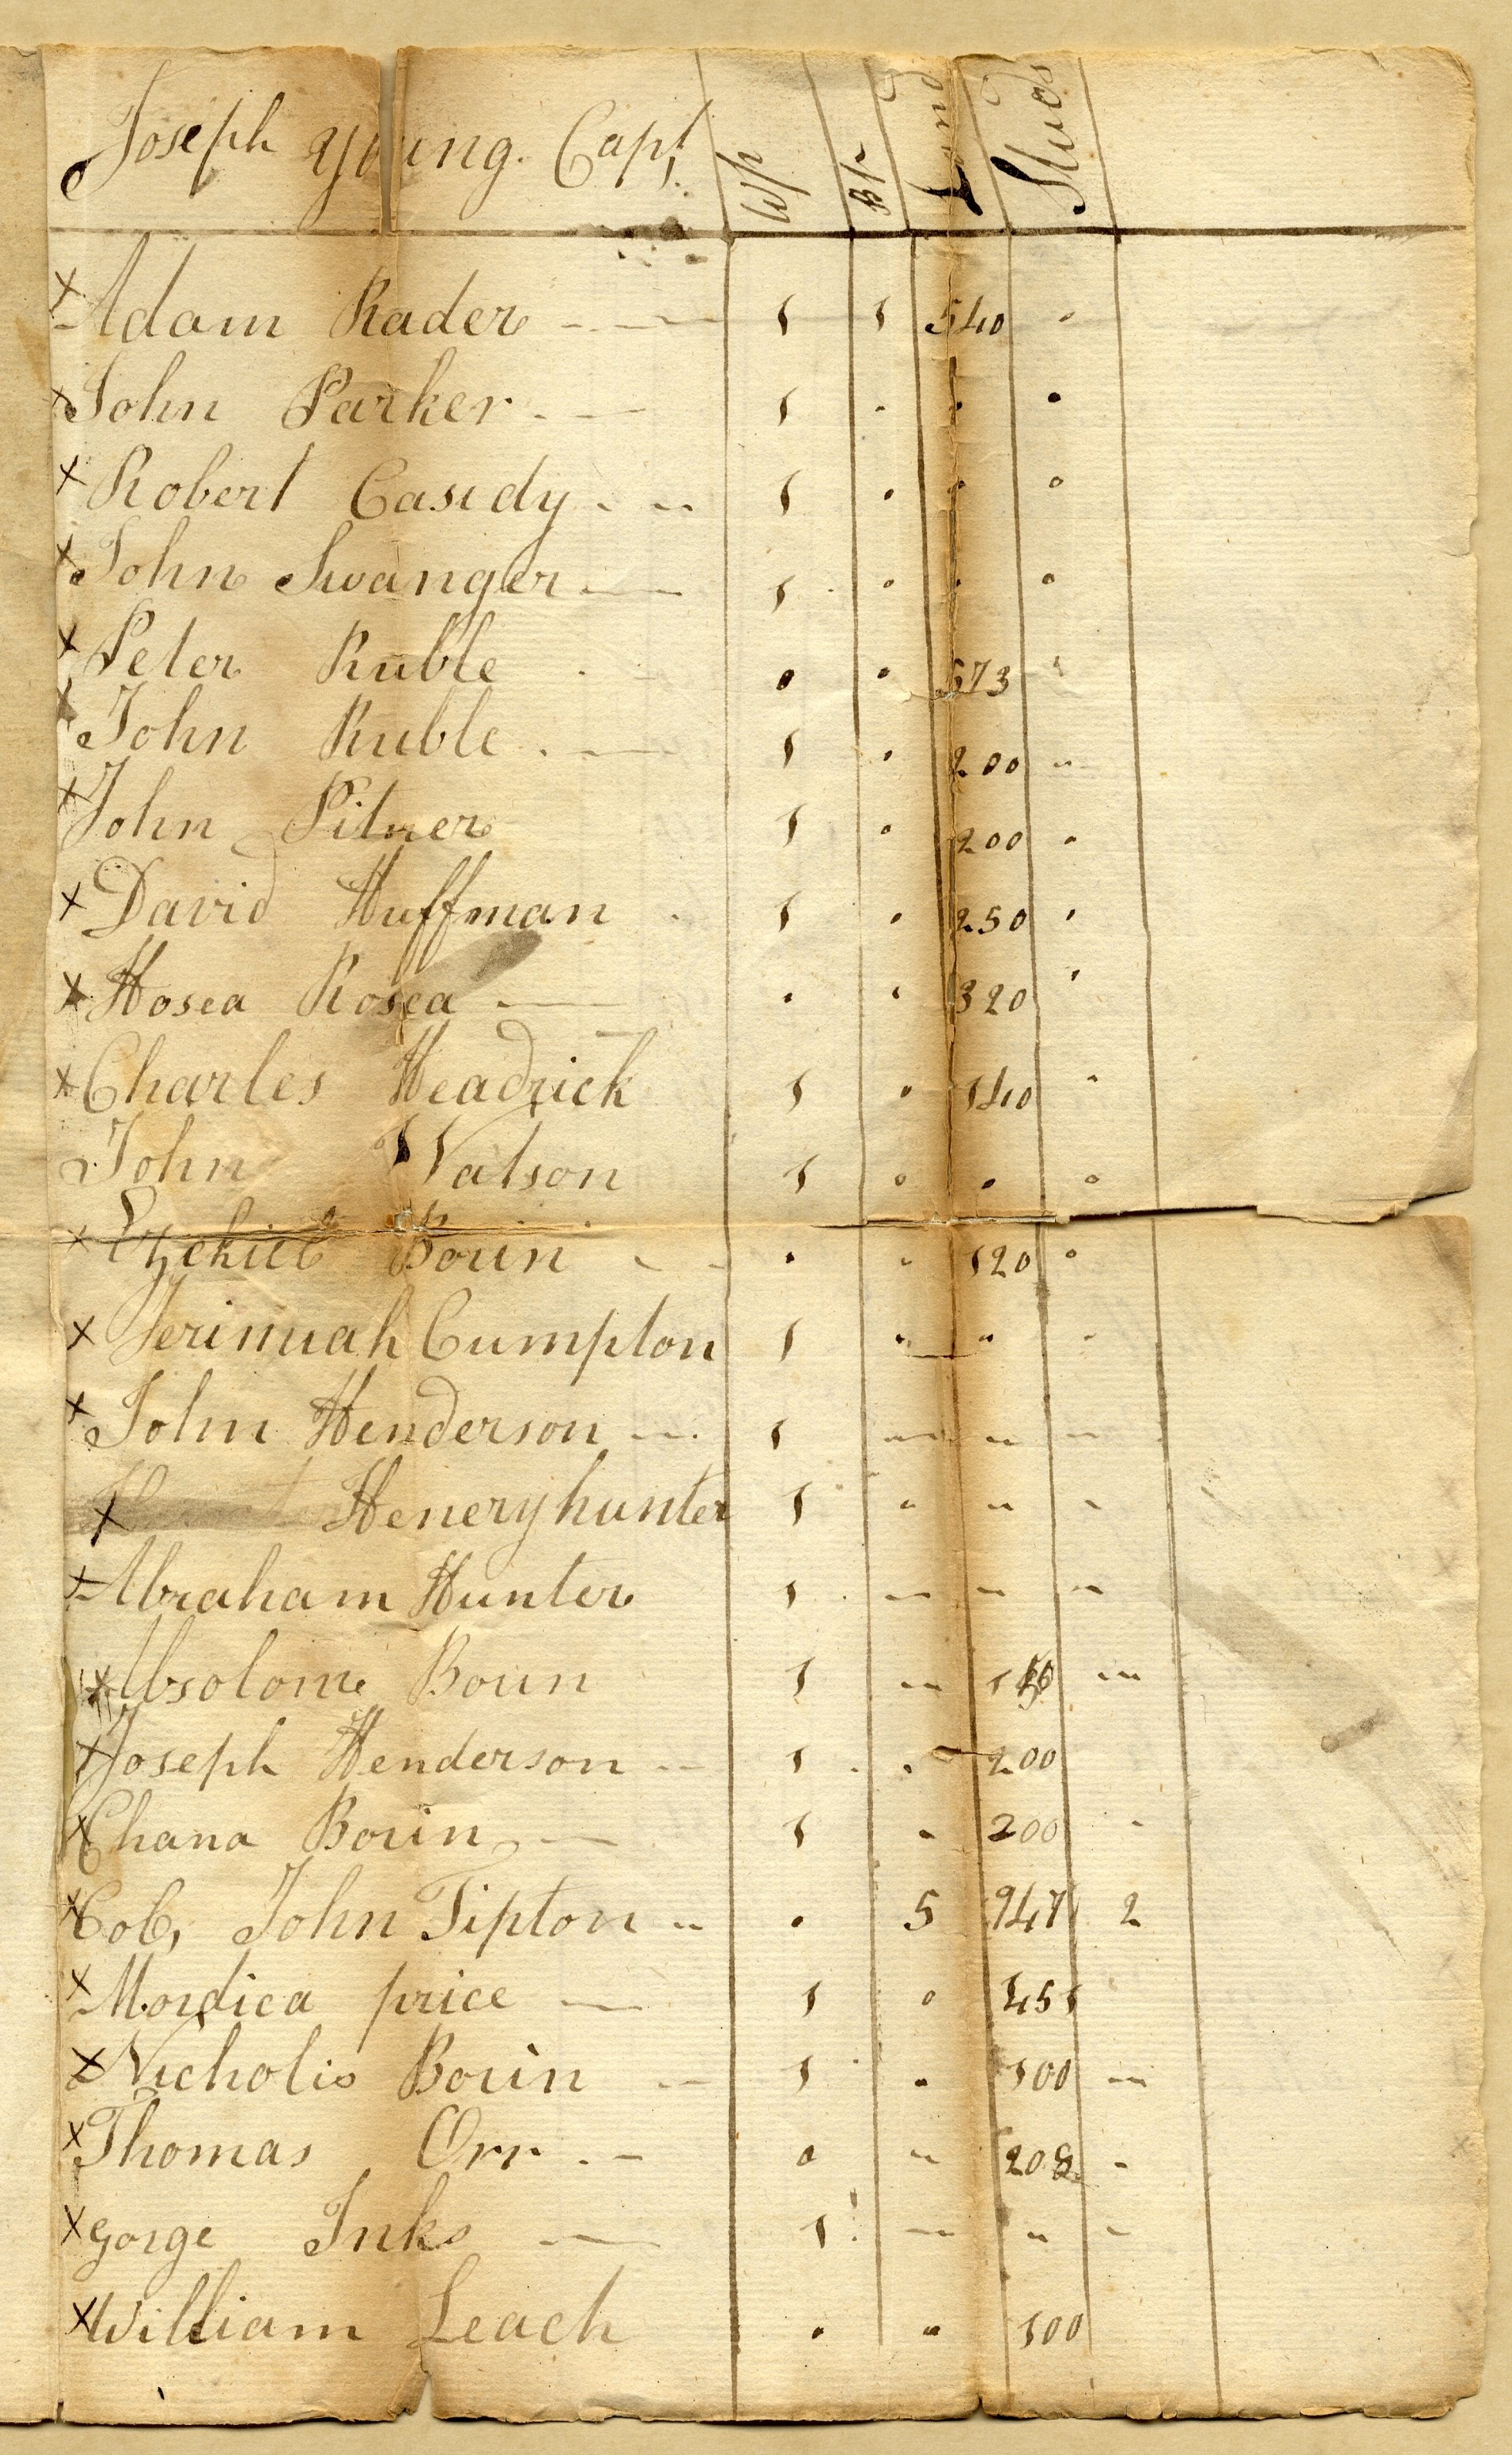 Joseph Young. Capt, Wp Bp Land Studs
x Adam Rader - - - 1 1 540 "
x John Parker - - 1 . . .
x Robert Casidy - - 1 . . .
x John Swanger - - 1 . . .
x Peter Ruble . - 0 . 573 "
x John Ruble . - 1 . 200 "
x John Pitner 1 . 200 .
x David Huffman . 1 . 250 .
x Hosea Rosea - . . 320 '
x Charles Headrick 1 . 140 "
John Watson 1 . . .
x Ezekiel Bouin - - . . 120 .
x Jerimiah Cumpton 1 . " "
x John Henderson - . 1 " " "
x Henery hunter 1 " " "
x Abraham Hunter 1 . - " "
x Absolom Boun 1 " "
x Joseph Henderson - 1 . . 200
x Chana Bouin - 1 . 200 "
x Col, John Tipton " . 5 947 2
x Mordica price - 1 . 451
x Nicholis Bouin - 1 . 100 "
x Thomas Orr . - 0 " 208 -
x Gorge Inks - 1 - " -
x William Leach . " 100